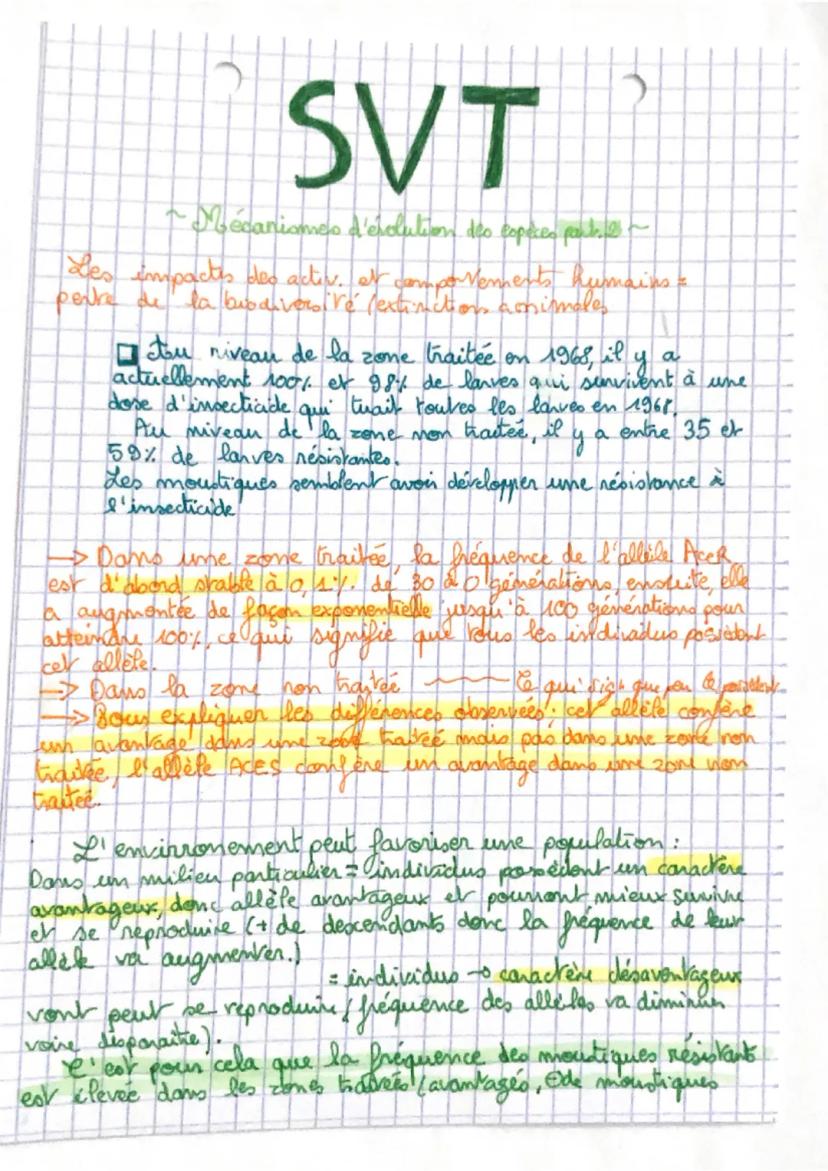 SVT
~ Mécanismes d'évolution des espèces part.2 ~
Les impacts des activ. et comportements humains =
perte de la biodiversité (extinctions animales
Au niveau de la zone traitée en 1968, il y a
actuellement 100% et 98% de larves qui survivent à une
dose d'insecticide qui tuait toutes les larves en 1968.
Au niveau de la zone non traitée, il y a entre 35 et
59% de larves résistantes.
Les moustiques semblent avoir développer une résistance à
l'insecticide
→ Dans une zone traitée, la fréquence de l'allèle AceR
est d'abord stable à 0,1% de 30 à 0 générations, ensuite, elle
a augmentée de façon exponentielle jusqu'à 100 générations pour
atteindre 100%, ce qui signifie que tous les individus possèdent
cet allèle.
→ Dans la zone non traitée ——— Ce qui sign que peu le possèdent
→ Pour expliquer les différences observées : cet allèle confère
un avantage dans une zone traitée mais pas dans une zone non
traitée, l'allèle AceS confère un avantage dans une zone non
traitée.
L'environnement peut favoriser une population :
Dans un milieu particulier = individus possèdent un caractère
avantageux, donc allèle avantageux et pourront mieux survivre
et se reproduire (+ de descendants donc la fréquence de leur
allèle va augmenter.)
= individus → caractère désavantageux
vont peut se reproduire (fréquence des allèles va diminuer
voire disparaître).
C'est pour cela que la fréquence des moustiques résistant
est élevée dans les zones traitées (avantagés, de moustiques